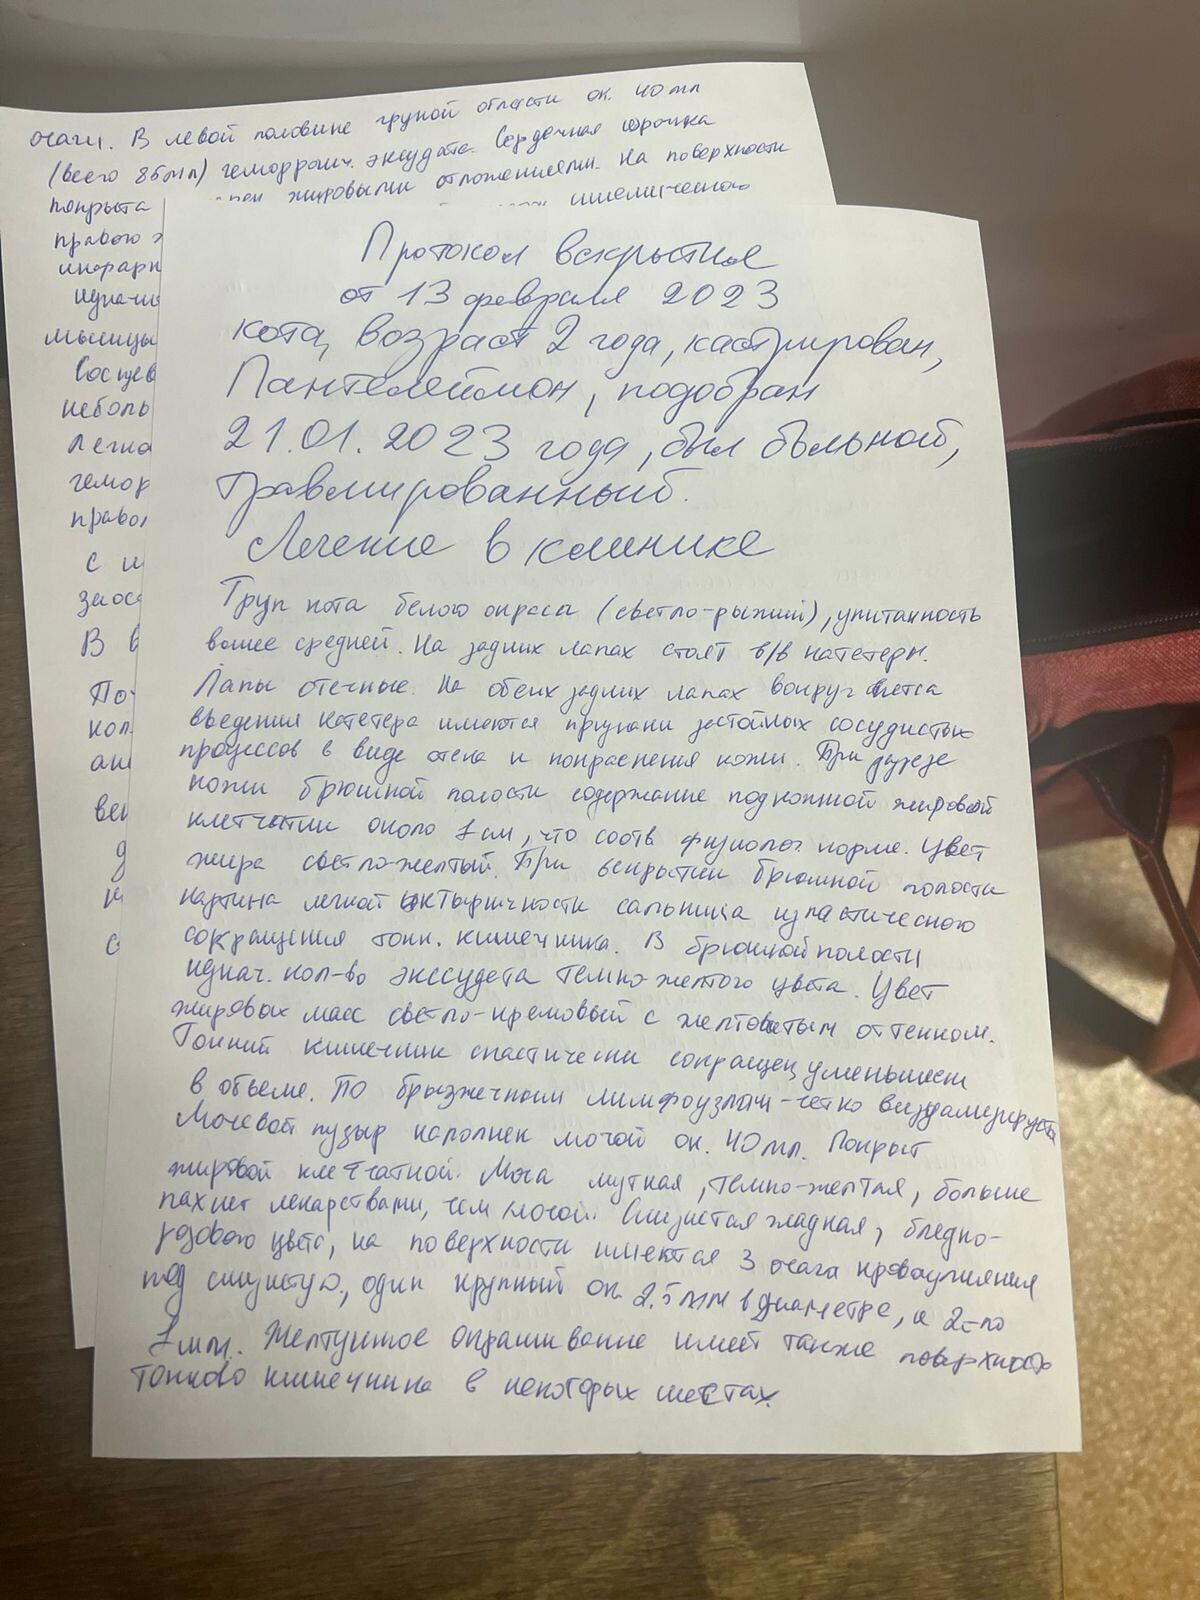 очаги. В левой половине грудной области ок. 40 мл
(всего 85 мл) геморрагич. экссудата. Сердечная сорочка
покрыта жировыми отложениями. На поверхности
правого ишемического
инфаркт
мышцы
неболь
легко
гемор
право
с и
В в
кол.
вен
Протокол вскрытия
от 13 февраля 2023
кота, возраст 2 года, кастрирован,
Пантелеймон, подобран
21.01.2023 года, был больной,
травмированный.
Лечение в клинике
Труп кота белого окраса (светло-рыжий), упитанность
выше средней. На задних лапах стоят в/в катетеры.
Лапы отечные. На обеих задних лапах вокруг места
введения катетера имеются признаки застойных сосудистых
процессов в виде отека и покраснения кожи. При разрезе
кожи брюшной полости содержание подкожной жировой
клетчатки около 1 см, что соотв физиолог. норме. Цвет
жира светло-желтый. При вскрытии брюшной полости
картина легкой иктеричности сальника и спастического
сокращения тонк. кишечника. В брюшной полости
незнач. кол-во экссудата темно-желтого цвета. Цвет
жировых масс светло-кремовый с желтоватым оттенком.
Тонкий кишечник спастически сокращен, уменьшен
в объеме. По брыжечным лимфоузлам - четко визуализируются
Мочевой пузырь наполнен мочой ок. 40 мл. Покрыт
жировой клетчаткой. Моча мутная, темно-желтая, больше
пахнет лекарствами, чем мочой. Слизистая гладкая, бледно-
розового цвета, на поверхности имеются 3 очага кровоизлияния
под слизистую, один крупный ок. 2.5 мм в диаметре, и 2 - по
1 мм. Желтушное окрашивание имеет также поверхность
тонкого кишечника в некоторых местах.